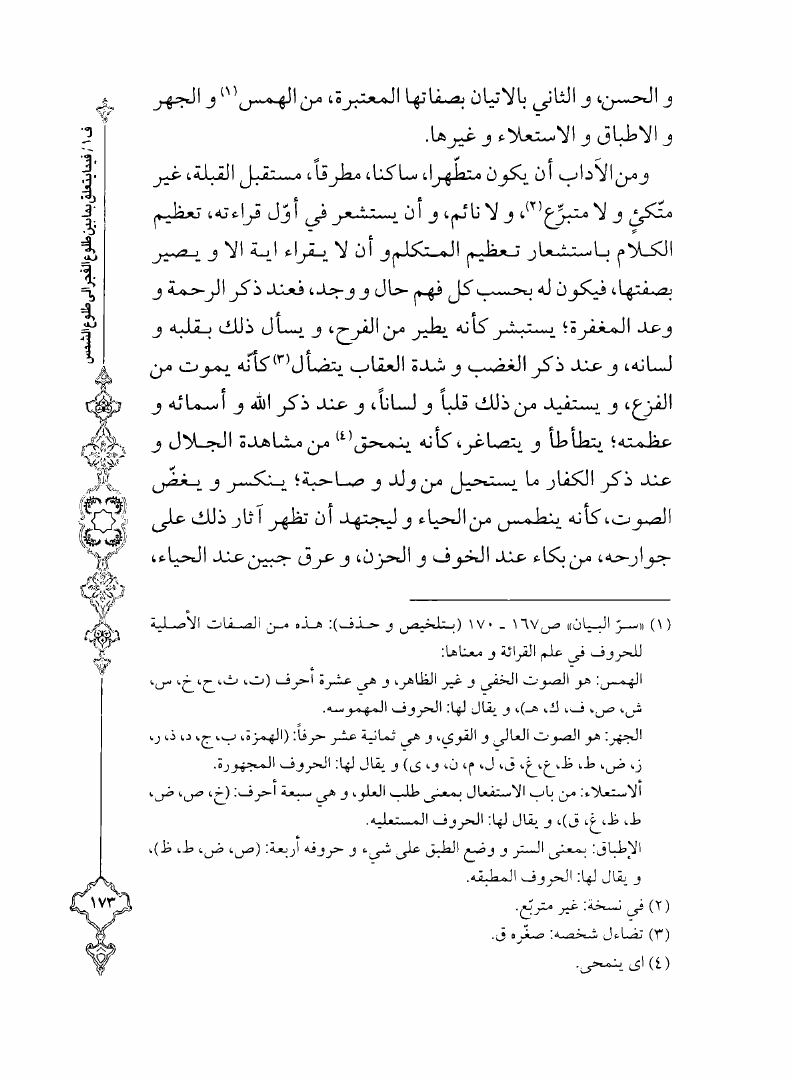 و الحسن، و الثاني بالاتيان بصفاتها المعتبرة، من الهمس(١) و الجهر و
و الاطباق و الاستعلاء و غيرها.
ومن الآداب أن يكون متطّهرا، ساكنا، مطرقاً، مستقبل القبلة، غير
متّكئ و لا متبرِّع(٢)، و لا نائم، و أن يستشعر في أوّل قراءته، تعظيم
الكلام باستشعار تعظيم المتكلم و أن لا يقراء اية الا و يصير
بصفتها، فيكون له بحسب كل فهم حال و وجد، فعند ذكر الرحمة و
وعد المغفرة؛ يستبشر كأنه يطير من الفرح، و يسأل ذلك بقلبه و
لسانه، و عند ذكر الغضب و شدة العقاب يتضأل(٣) كأنّه يموت من
الفزع، و يستفيد من ذلك قلباً و لساناً، و عند ذكر الله و أسمائه و
عظمته؛ يتطأطأ و يتصاغر، كأنه ينمحق(٤) من مشاهدة الجلال و
عند ذكر الكفار ما يستحيل من ولد و صاحبة؛ ينكسر و يغضّ
الصوت، كأنه ينطمس من الحياء و ليجتهد أن تظهر آثار ذلك على
جوارحه، من بكاء عند الخوف و الحزن، و عرق جبين عند الحياء،
(١) «سرّ البيان» ص١٦٧ ـ ١٧٠ (بتلخيص و حذف): هذه من الصفات الأصلية
للحروف في علم القرائة و معناها:
الهمس: هو الصوت الخفي و غير الظاهر، و هي عشرة أحرف (ت، ث، ح، خ، س،
ش، ص، ف، ك، هـ)، و يقال لها: الحروف المهموسه.
الجهر: هو الصوت العالي و القوي، و هي ثمانية عشر حرفاً: (الهمزة، ب، ج، د، ذ، ر،
ز، ض، ط، ظ، ع، غ، ق، ل، م، ن، و، ى) و يقال لها: الحروف المجهورة.
ألاستعلاء: من باب الاستفعال بمعنى طلب العلو، و هي سبعة أحرف: (خ، ص، ض،
ط، ظ، غ، ق)، و يقال لها: الحروف المستعليه.
الإطباق: بمعنى الستر و وضع الطبق على شيء و حروفه أربعة: (ص، ض، ط، ظ)،
و يقال لها: الحروف المطبقه.
(٢) في نسخة: غير متربّع.
(٣) تضاءل شخصه: صغّره ق.
(٤) اى ينمحى.
ف ١ / فيما يتعلق بما بين طلوع الفجر الى طلوع الشمس
١٧٣